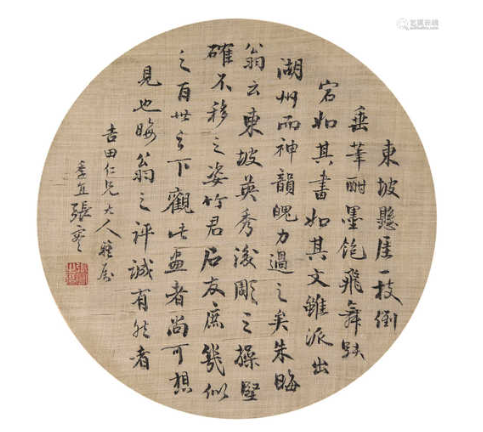 東坡懸厓一枝倒
垂筆酣墨飽飛舞駃
宕如其畫如其文雖派出
湖州而神韻魄力過之矣朱晦
翁云東坡英秀後彫之操堅
確不移之姿竹君石友庶幾似
之百世之下觀此畫者尚可想
見也晦翁之評誠有然者
吉田仁兄大人雅屬
張